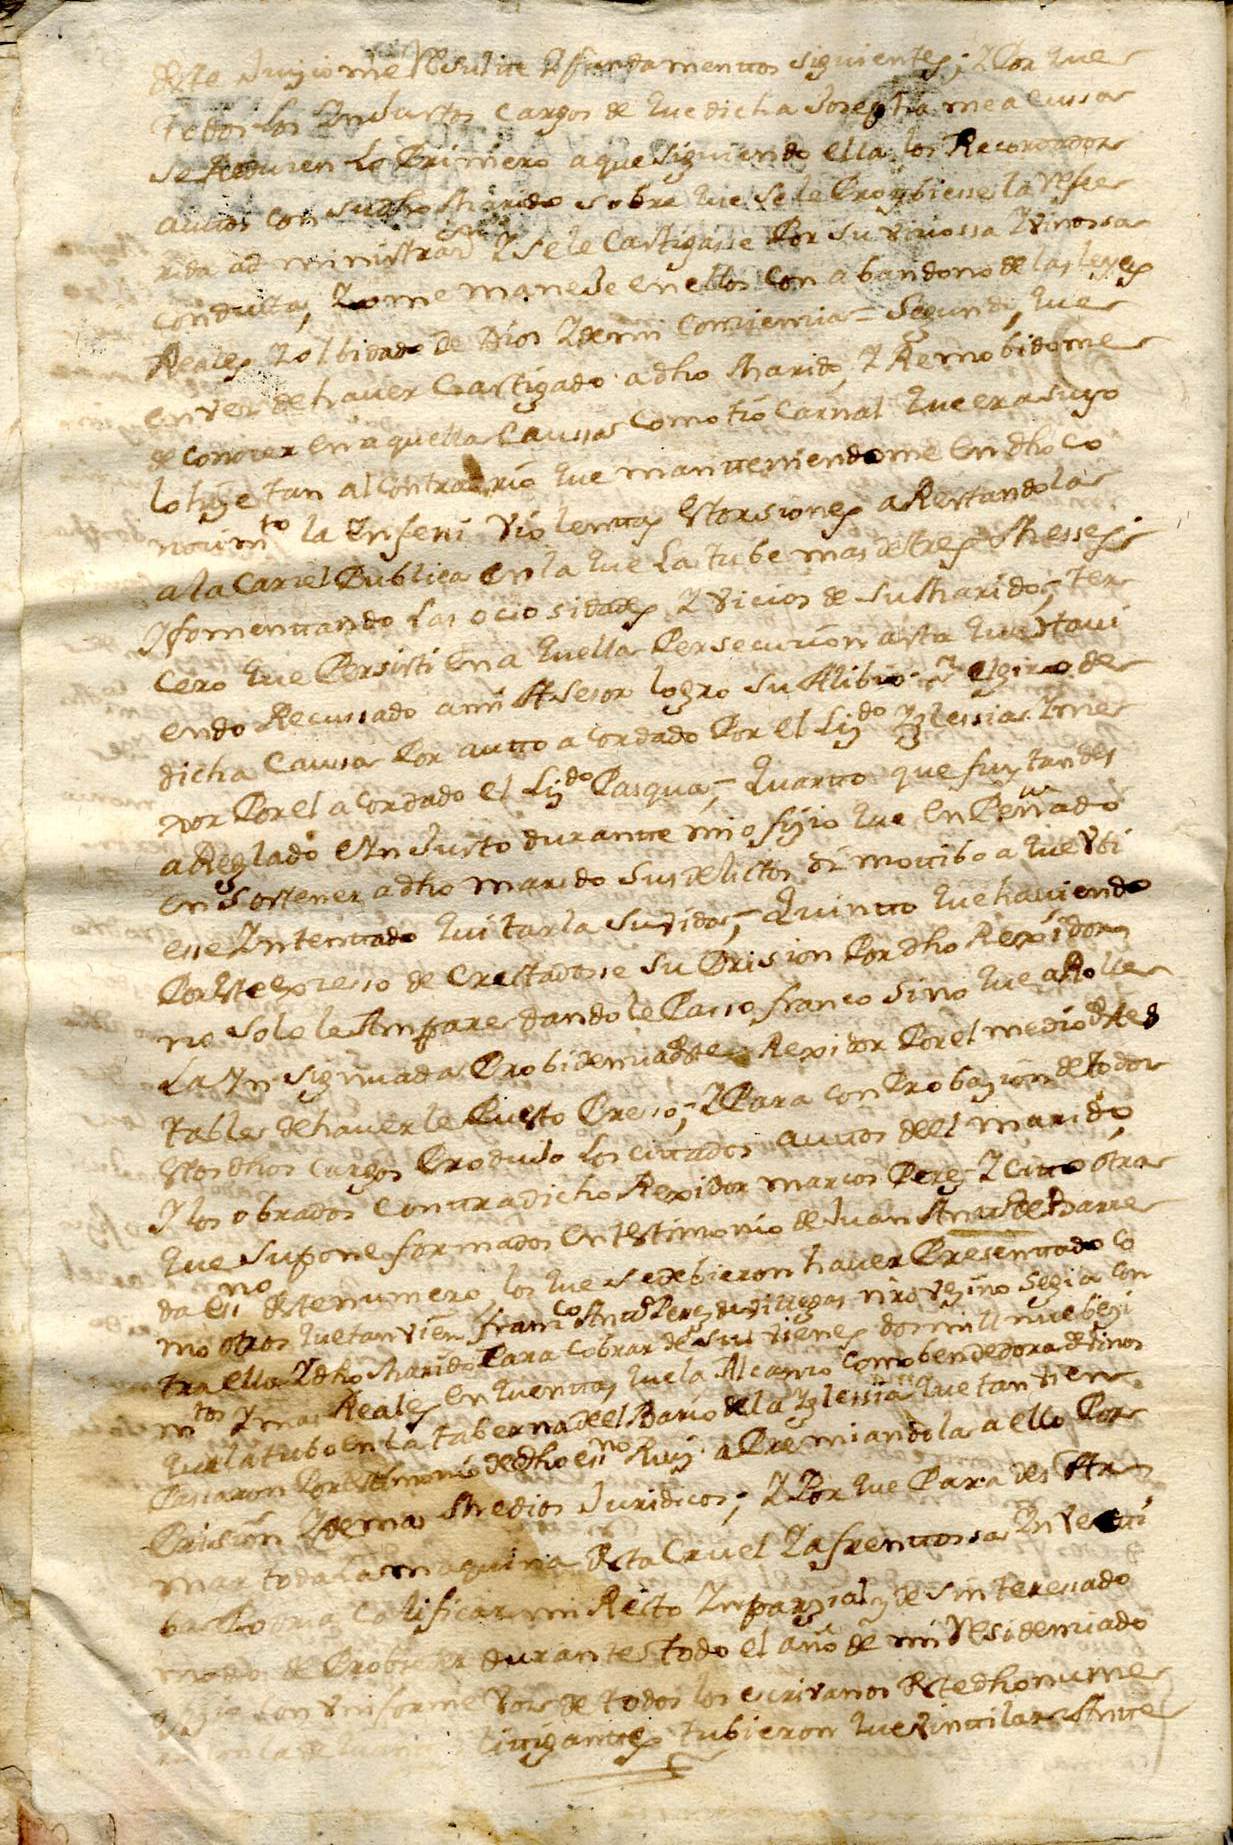 deste Juizio me Resultte Yfundamenttos siguientes; YPor que
todos los YnJustos Cargos de que dicha Josepha me acussa
se Reducen Lo Primero a que siguiendo ella los Recordados
auttos Con su dho Marido sobre que se le Proybiesse la Refe
rida administraon Y se le Castigasse Por su viciossa Y vinossa
Conducta, Yo me maneJe en ellos Con abandono de las leyes
Reales Yolbidado de Dios Y de mi Conciencia = Segundo, que
en vez de haver Castigado a dho Marido, Y Remobidome
de Conocer en aquella Caussa Como tio Carnal que era suyo
lo hize tan al Contrario que mantteniendome en dho co
nocimto la Ynferi violenttas estorsiones aRestandola
a la Carzel Publica en la que la tube mas de tres Messes
Yfomenttando las ociosidades Y vicios de su Marido; ter
cero que Persisti en aquella Persecucion asta que ettavi
endo Recussado a mi Asesor logro su Alibio en el giro de
dicha Caussa Por autto acordado Por el Lizdo Yglessias Y me
xor Por el acordado el Lizdo Pasqua; = Quartto que fuy tan des
aReglado e YnJusto durantte mi ofizio que enPeñado
en sostener a dho marido sus delictos di mottibo a que Yn
esse Yntenttado quitarla su vida; = Quintto que haviendo
Por este expresso de Crettadosse su Prision Por dho Rexidor
no solo le Ampare dandole Passo franco sino que aRolle
La Ynsignuada Probidencia deste Rexidor Por el medio detes
table de haverle Puesto Presso; = YPara ConProbazion de todos
estos dhos cargos ProduJo los cittados auttos del marido,
Y los obrados Conttra dicho Rexidor marcos Perez Y Citto otros
que supone formados en testimonio de Juan Antto de Barre
da essno deste numero, los que se debieron haver Presenttado co
mo otros que tanvien Franco Antto Perez de villegas nro vezino seguia con
tra ella Y dho Marido Para Cobrar de sus vienes dos mill nuebezi
mtos Ymas Reales en quenttas que la Alcanzo Como bendedora de vinos
que la tubo en la taberna del Bario de la Yglessia, que tanvien
Passaron Por testimonio de dho essno Ruiz aPremiandola a ello Por
Prision Ydemas Medios Juridicos; YPor que Para desAr
mar toda la maquina desta Cruel Yafrenttossa Ynvectti
ba Podria Calificar mi Recto Ynparzial Y desintteressado
modo de Probeer durante todo el año de mi Residenciado
ofizio Con vniforme vos de todos los escrivanos deste dho nume
littiganttes tubieron que vinttilar Antte